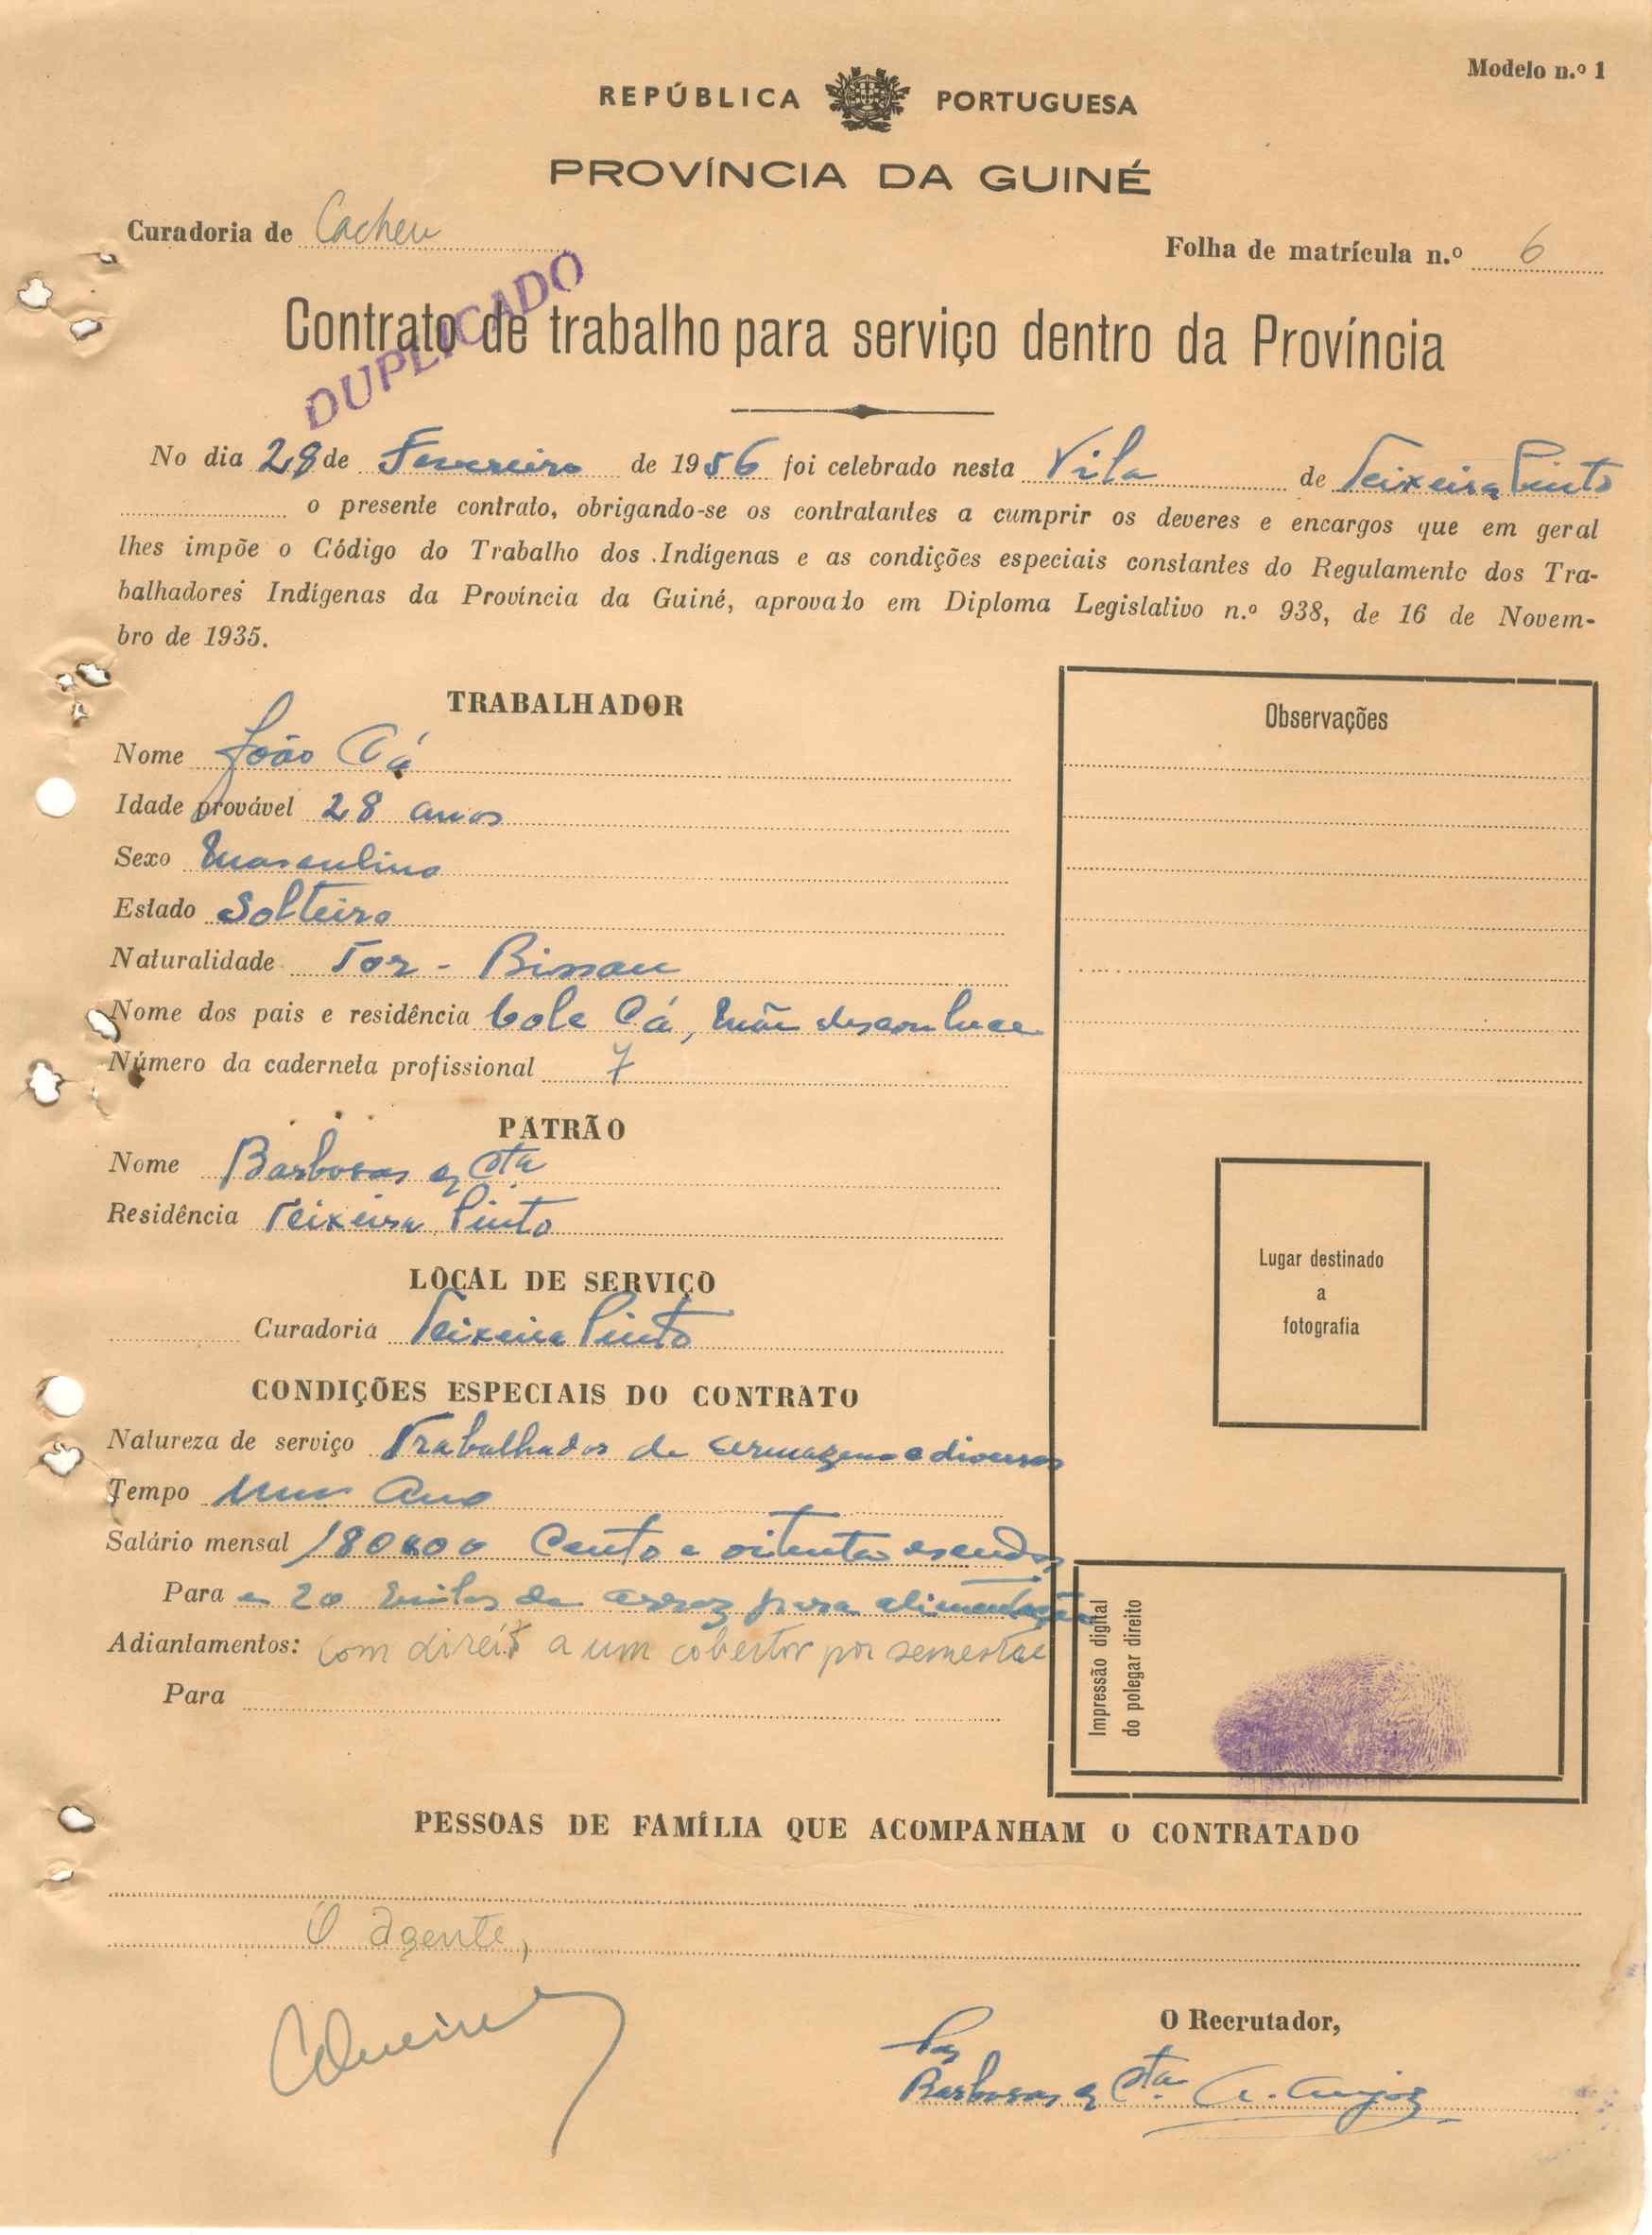 Modelo n.º 1
REPÚBLICA PORTUGUESA
PROVÍNCIA DA GUINÉ
Curadoria de Cacheu
Folha de matrícula n.º 6
DUPLICADO
Contrato de trabalho para serviço dentro da Província
No dia 28 de Fevereiro de 1956 foi celebrado nesta Vila de Teixeira Pinto
o presente contrato, obrigando-se os contratantes a cumprir os deveres e encargos que em geral
lhes impõe o Código do Trabalho dos Indígenas e as condições especiais constantes do Regulamento dos Tra-
balhadores Indígenas da Província da Guiné, aprovado em Diploma Legislativo n.º 938, de 16 de Novem-
bro de 1935.
TRABALHADOR
Nome João Cá
Idade provável 28 anos
Sexo Masculino
Estado Solteiro
Naturalidade Tor - Bissau
Nome dos pais e residência Cole Cá, Mãe desconhece
Número da caderneta profissional 7
Observações
PATRÃO
Nome Barbosas & Cta
Residência Teixeira Pinto
Lugar destinado
a
fotografia
LOCAL DE SERVIÇO
Curadoria Teixeira Pinto
CONDIÇÕES ESPECIAIS DO CONTRATO
Natureza de serviço Trabalhador de armazens e diversos
Tempo Um Ano
Salário mensal 180$00 Cento e oitenta escudos
Para e 20 kilos de arroz para alimentação
Adiantamentos: com direito a um cobertor por semestre
Para
Impressão digital
do polegar direito
PESSOAS DE FAMÍLIA QUE ACOMPANHAM O CONTRATADO
O agente,
O Recrutador,
Por
Barbosas & Cta A.